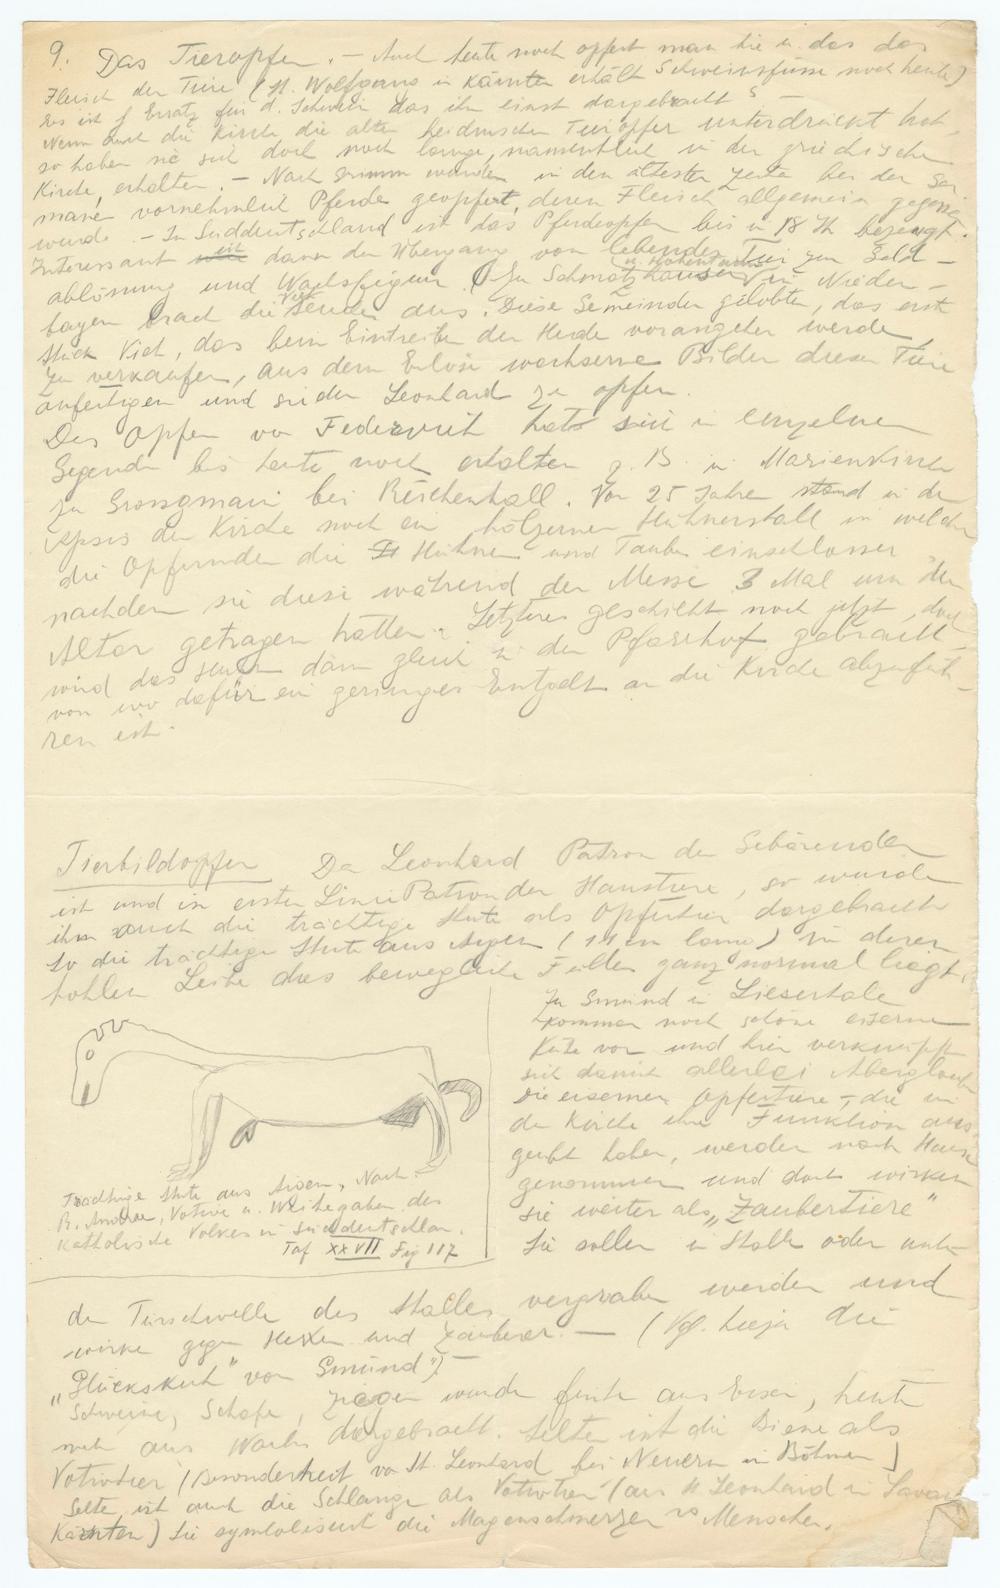 9. Das Tieropfer. — Auch heute noch opfert man hie u. da das
Fleisch der Tiere (St. Wolfgang in Kärnten erhält Schweinsfüsse noch heute)
Es ist f Ersatz für d. Schwein das ihm einst dargebracht —
Wenn auch die Kirche die alten heidnischen Tieropfer unterdrückt hat,
so haben sie sich doch noch lange, namentlich in der griechischen
Kirche, erhalten. — Nach Grimm wurden in den ältesten Zeite bei den Ger
mane vornehmlich Pferde geopfert, deren Fleisch allgemein gegessen
wurde. — In Süddeutschland ist das Pferdeopfer bis in 18 Jh bezeugt.
Interessant ist dann der Übergang vom lebenden Tier zur Geld-
ablösung und Wachsfiguren. (In Schmatzhausen u. in Nieder-
bayern brach die Viehseuche aus. Diese Gemeinden gelobten, das erste
Stück Vieh, das beim Eintreiben der Herde vorangehen werde,
zu verkaufen, aus dem Erlöse wächserne Bilder dieser Tiere
anfertigen und sie dem Leonhard zu opfern.
Das Opfern von Federvieh hat sich in einzelnen
Gegenden bis heute noch erhalten z. B. in Marienkirche
zu Grossgmain bei Reichenhall. Vor 25 Jahren stand in der
Apsis der Kirche noch ein hölzerner Hühnerstall in welchen
die Opfernden die Hühner und Tauben einschlossen
nachdem sie diese während der Messe 3 Mal um den
Altar getragen hatten. Letzteres geschieht noch jetzt, doch
wird das Huhn dann gleich in den Pfarrhof gebracht
von wo dafür ein geringes Entgelt an die Kirche abzufüh-
ren ist.
Tierbildopfer Da Leonhard Patron der Gebärenden
ist und in erster Linie Patron der Haustiere, so wurde
ihm auch die trächtige Stute als Opfertier dargebracht
So die trächtige Stute aus Aigen (14 cm lang) in deren
hohlen Leibe das bewegliche Füllen ganz normal liegt.
Zu Gmünd im Liesertale
kommen noch schöne eiserne
Kühe vor und hier verknüpft
sich damit allerlei Aberglauben
Die eisernen Opfertiere, die in
der Kirche ihre Funktion aus
geübt haben, werden nach Hause
genommen und dort wirken
sie weiter als „Zaubertiere"
Sie sollen in Stalle oder unter
Trächtige Stute aus Aigen, Nach.
R. Andree, Votive u. Weihegaben des
Katholische Volkes in Süddeutschlan.
Taf XXVII Fig 117
der Türschwelle des Stalles vergraben werden und
wirken gegen Hexen und Zauberer. — (Vgl. hiezu die
„Glückskuh" von Gmünd") —
Schweine, Schafe, Ziegen wurden früher aus Eisen, heute
mehr aus Wachs dargebracht. Selten ist die Biene als
Votivtier (Besonderheit von St. Leonhard bei Neuern in Böhmen)
Selten ist auch die Schlange als Votivtier (aus St Leonhard in Lavan
Kärnten) Sie symbolisiert die Magenschmerzen Menschen.